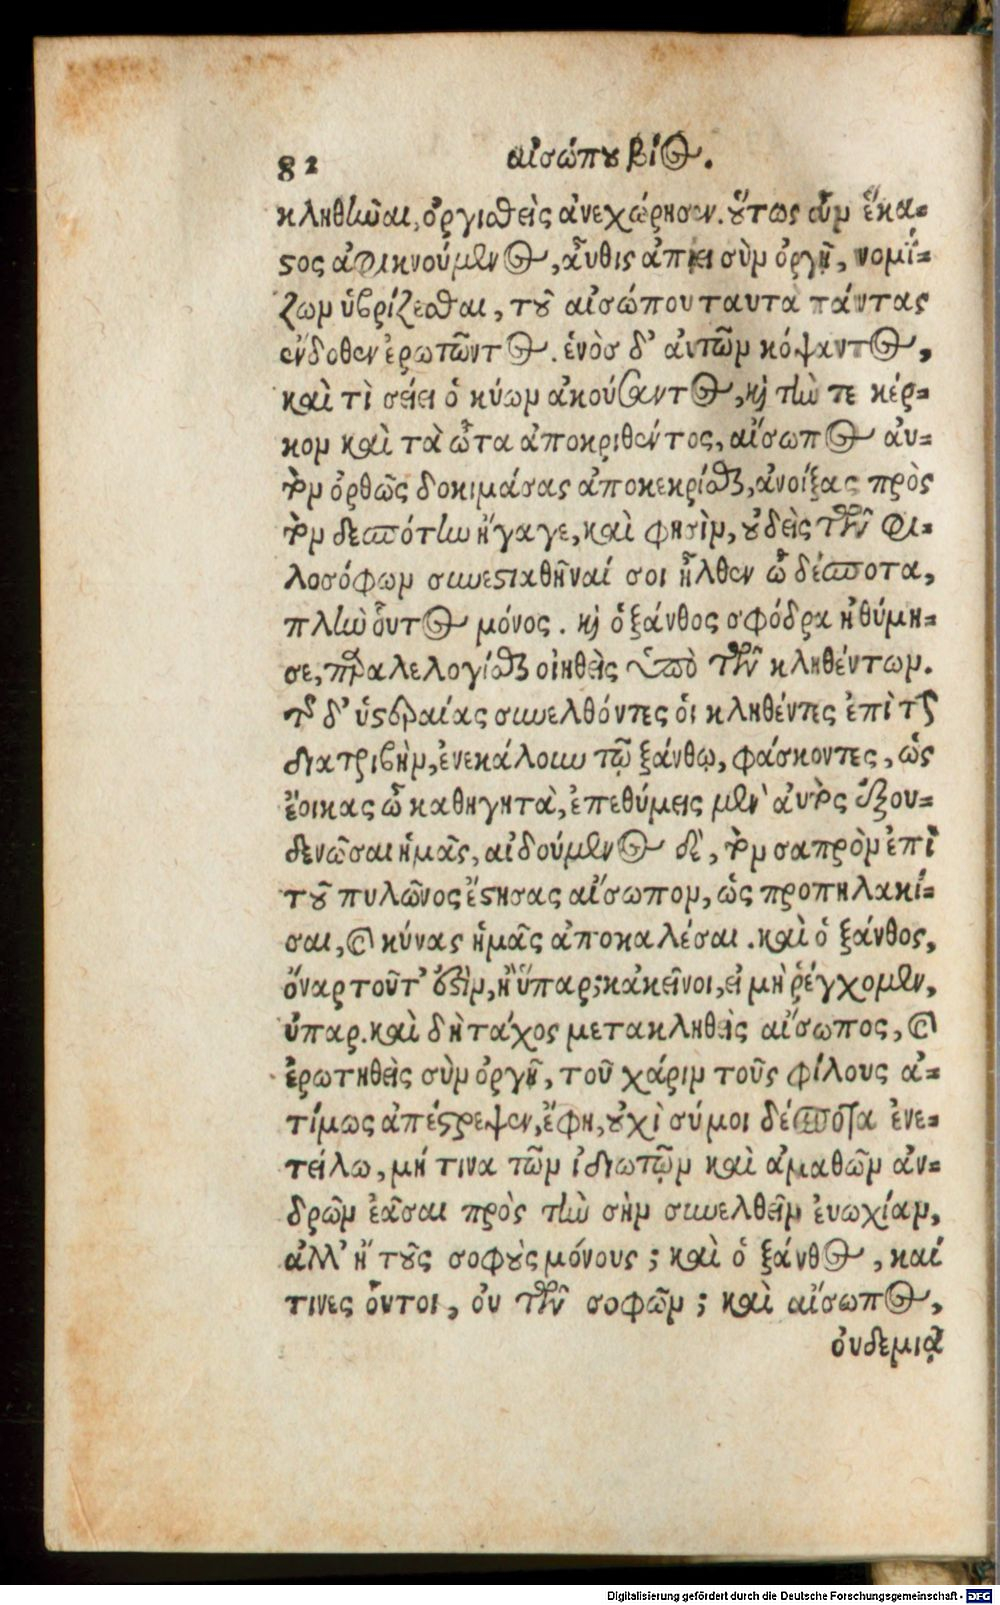 82 αἰσώπου βίος.
κληθῆναι, ὀργισθεὶς ἀνεχώρησεν. οὕτως οὖν ἕκα-
στος ἀφικνούμενος, αὖθις ἀπῄει σὺν ὀργῇ, νομί-
ζων ὑβρίζεσθαι, τοῦ αἰσώπου ταυτα πάντας
ἔνδοθεν ἐρωτῶντος. ἑνὸσ δ' ἀυτῶν κόψαντος,
καὶ τὶ σείει ὁ κύων ἀκούσαντος, καὶ τήν τε κέρ-
κον καὶ τὰ ὦτα ἀποκριθέντος, αἴσωπος ἀυ-
τὸν ὀρθῶς δοκιμάσας ἀποκεκρίσθαι, ἀνοίξας πρὸς
τὸν δεσπότην ἤγαγε, καὶ φησὶν, οὐδεὶς τῶν φι-
λοσόφων συνεστιαθῆναί σοι ἦλθεν ὦ δέσποτα,
πλὴν οὗτος μόνος. καὶ ὁ ξάνθος σφόδρα ἠθύμη-
σε, παραλελογίσθαι οἰηθεὶς ὑπὸ τῶν κληθέντων.
τῇ δ' ὑστεραίας συνελθόντες ὁι κληθέντες ἐπὶ τὴν
διατριβὴν, ἐνεκάλουν τῷ ξάνθῳ, φάσκοντες, ὡς
ἔοικας ὦ καθηγητὰ, ἐπεθύμεις μὲν ἀυτὸς ἐξου-
δενῶσαι ἡμᾶς, αἰδούμενος δὲ, τὸν σαπρὸν ἐπὶ
τοῦ πυλῶνος ἔστησας αἴσωπον, ὡς προπηλακί-
σαι, καὶ κύνας ἡμᾶς ἀποκαλέσαι. καὶ ὁ ξάνθος,
ὄναρ τοῦτ' ἐστὶν, ἢ ὕπαρ; κἀκεῖνοι, εἰ μὴ ῥέγχομεν,
ὕπαρ. καὶ δὴ τάχος μετακληθεὶς αἴσωπος, καὶ
ἐρωτηθεὶς σὺν ὀργῇ, τοῦ χάριν τοῦς φίλους ἀ-
τίμως ἀπέστρεψεν, ἔφη, οὐχὶ σύ μοι δέσποτα ἐνε-
τείλω, μή τινα τῶν ἰδιωτῶν καὶ ἀμαθῶν ἀν-
δρῶν ἐᾶσαι πρὸς τὴν σὴν συνελθεῖν ἐυωχίαν,
ἀλλ' ἢ τοῦς σοφοὺς μόνους; καὶ ὁ ξάνθος, καί
τινες οὗτοι, ὀυ τῶν σοφῶν; καὶ αἴσωπος,
ὀυδεμιᾷ
Digitalisierung gefördert durch die Deutsche Forschungsgemeinschaft - DFG